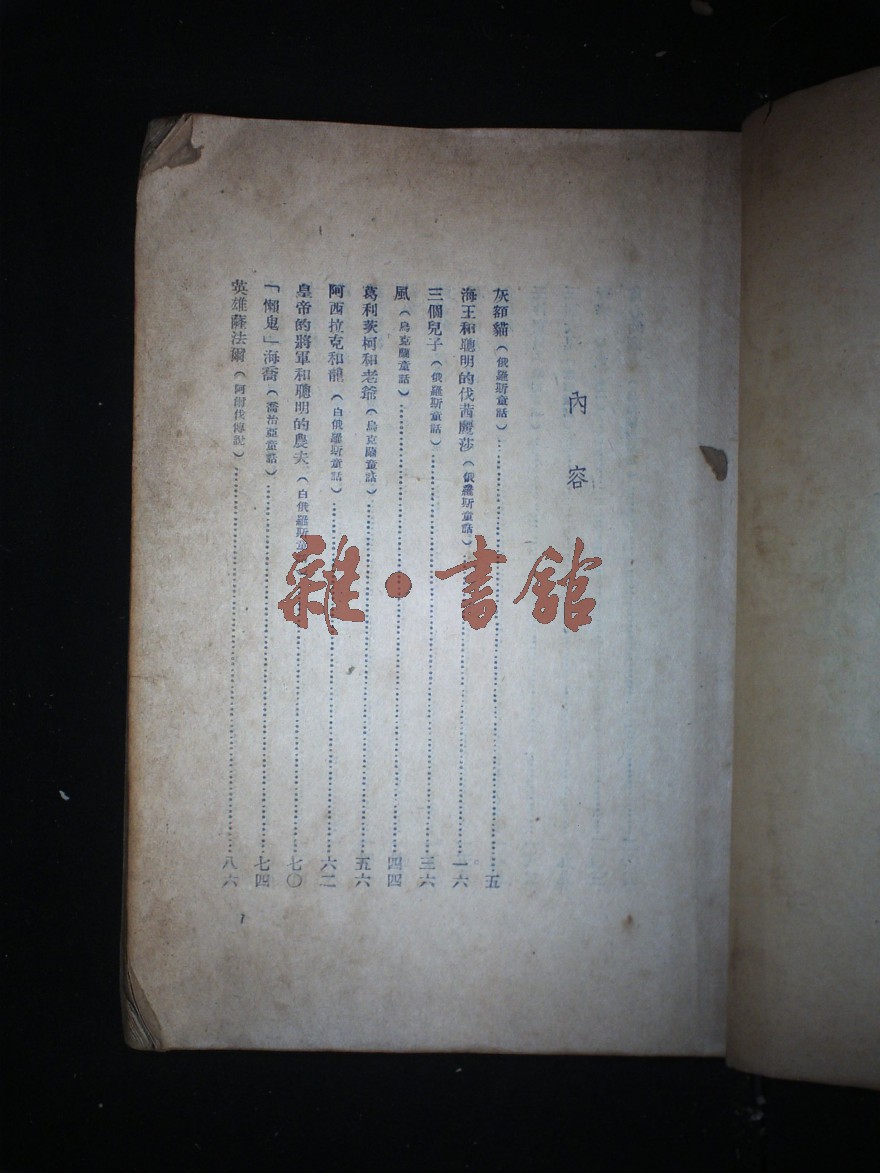 內容
灰額貓（俄羅斯童話）……五
海王和聰明的伐茜麗莎（俄羅斯童話）……一六
三個兒子（俄羅斯童話）……三六
風（烏克蘭童話）……四四
葛利茨柯和老爺（烏克蘭童話）……五六
阿西拉克和龍（白俄羅斯童話）……六二
皇帝的將軍和聰明的農夫（白俄羅斯……七〇
「懶鬼」海喬（喬治亞童話）……七四
英雄薩法爾（阿爾伐傳說）……八六
1
雜·書館